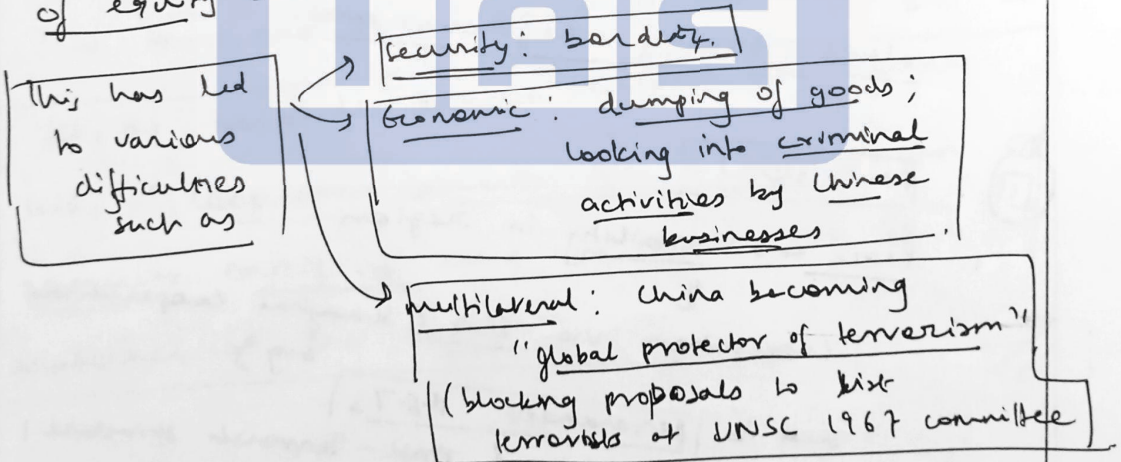 of equity
IAS
This has led
to various
difficulties
such as
Security: borders.
Economic: dumping of goods;
looking into criminal
activities by Chinese
businesses
multilateral: China becoming
"global protector of terrorism"
(blocking proposals to list
terrorists at UNSC 1967 committee